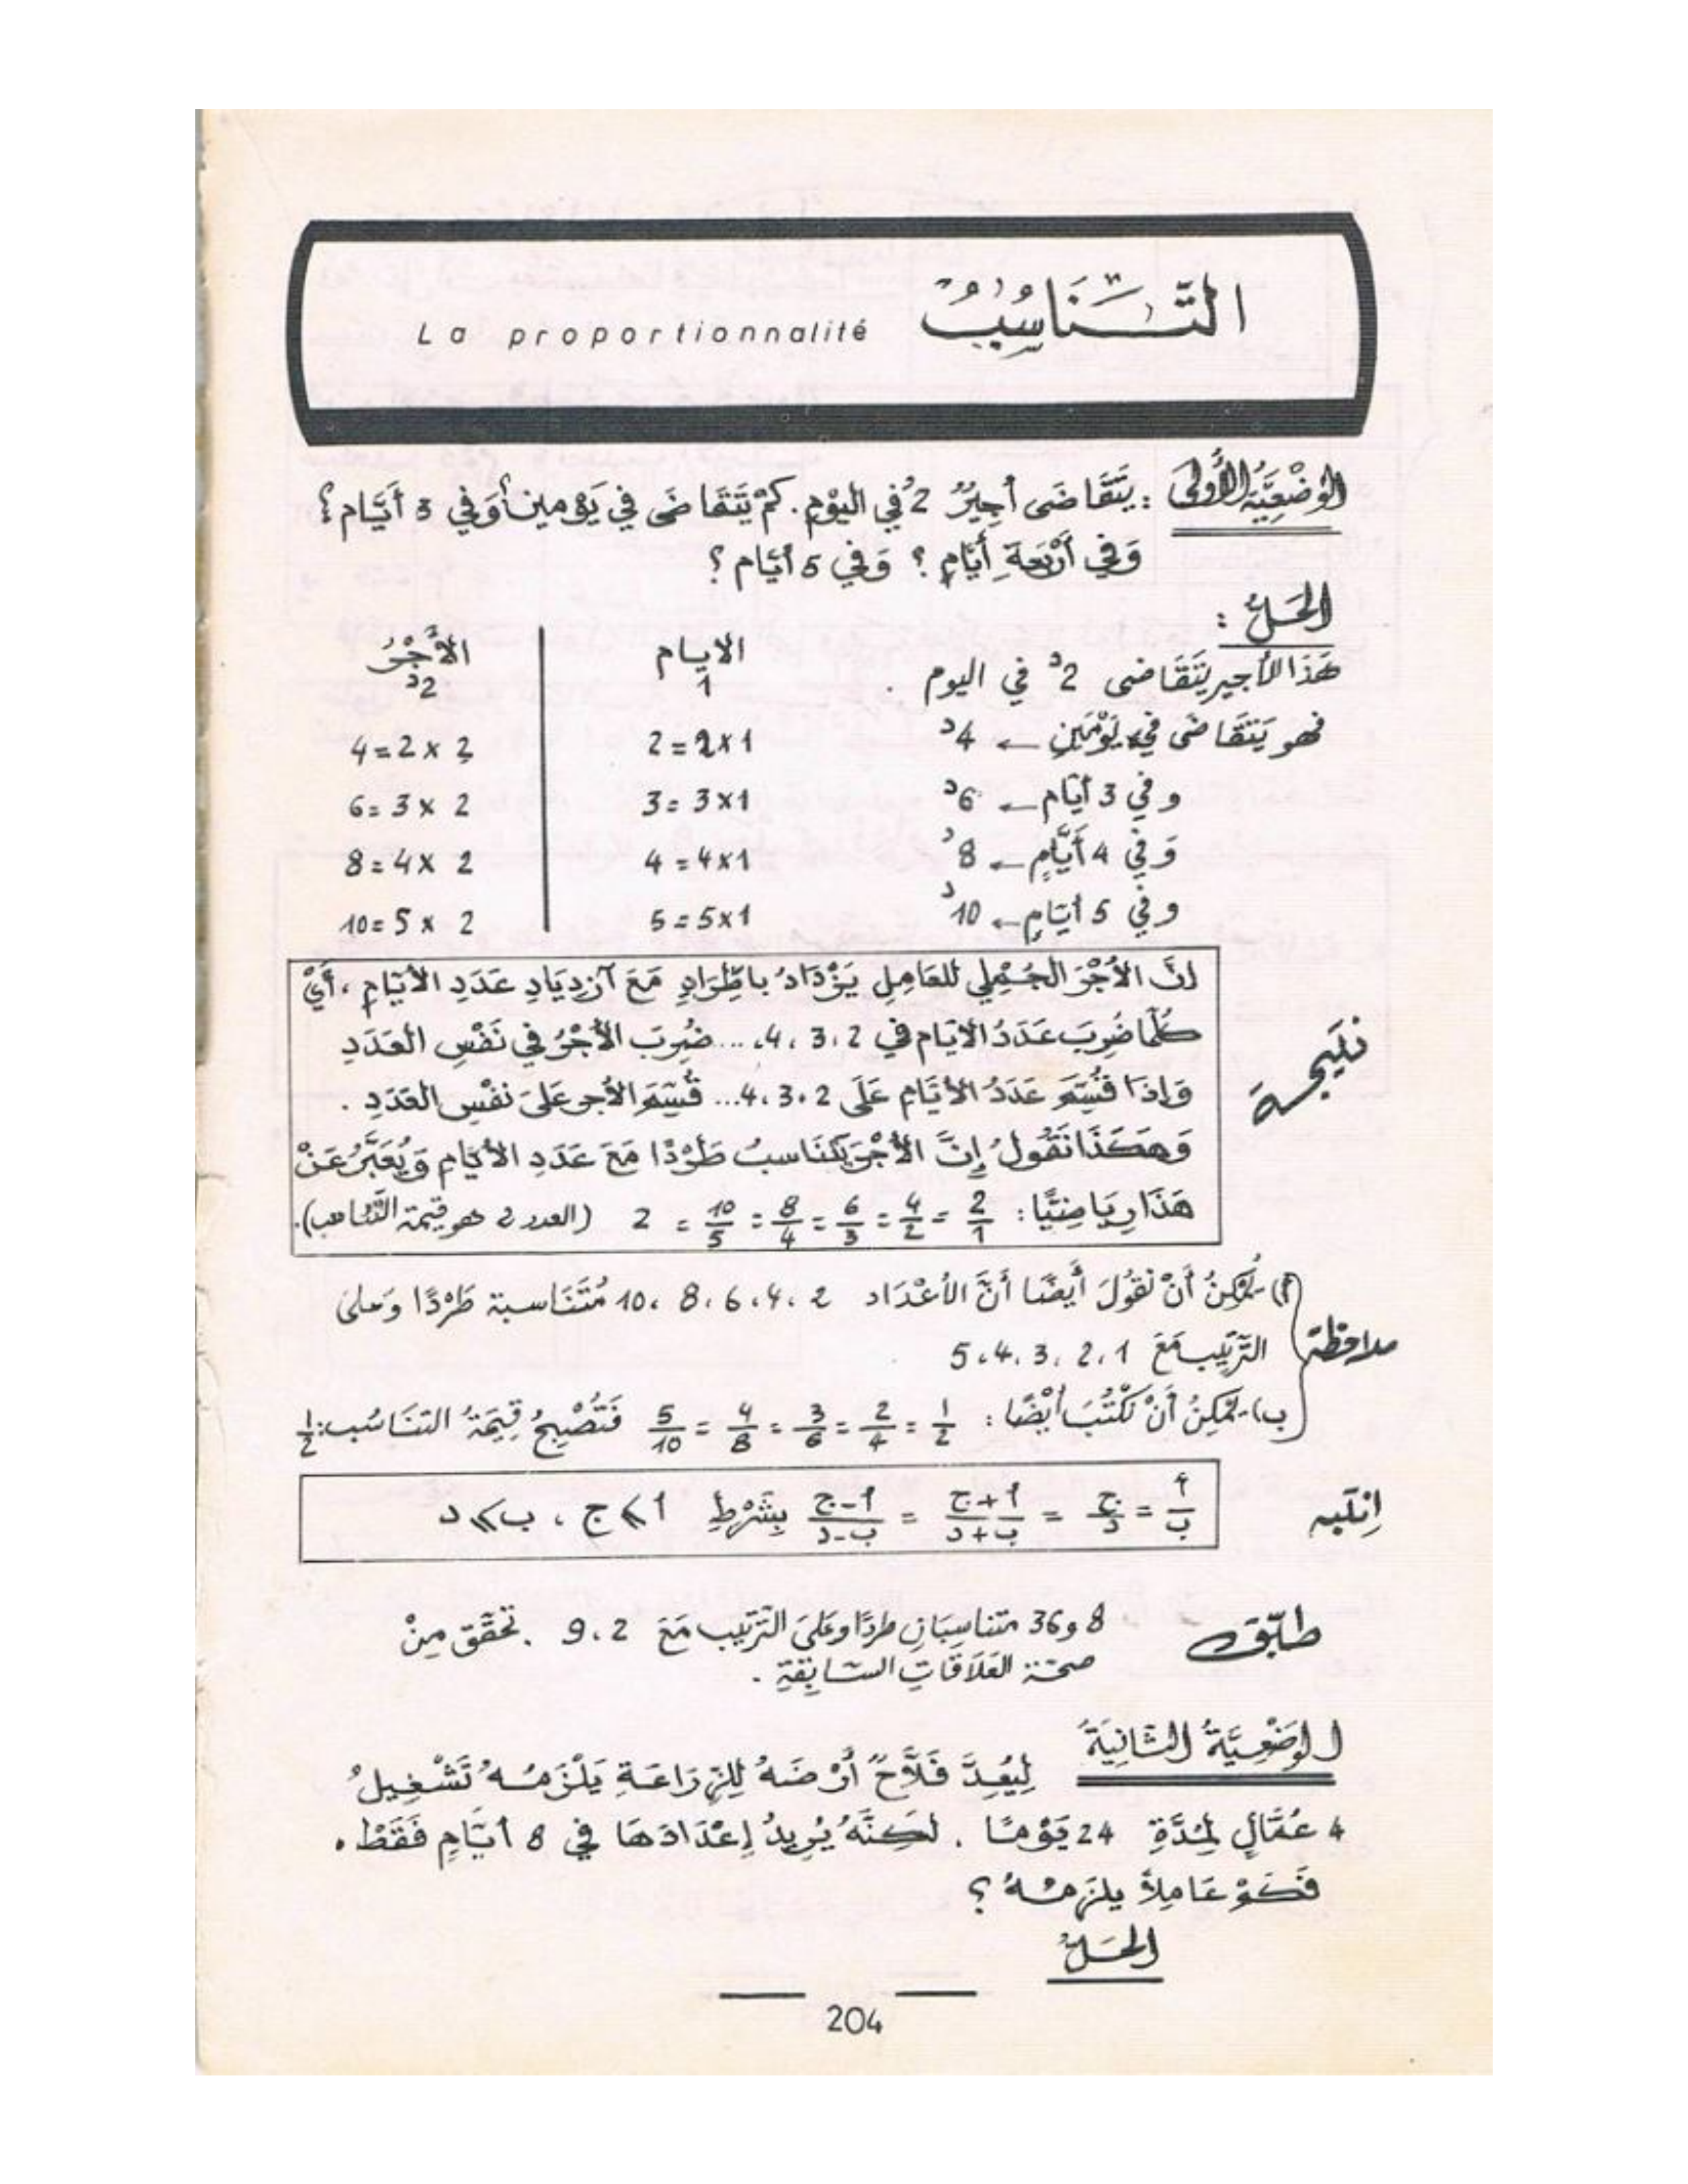 التَّنَاسُبُ
La proportionnalité
الوَضْعِيَّةُ الأُولَى : يَتَقَاضَى أَجِيرٌ 2د في اليَوْمِ. كَمْ يَتَقَاضَى في يَوْمين؟ وَفي 3 أَيَّام؟
وَفي أَرْبَعَةِ أَيَّامٍ ؟ وَفي 5 أيَّام ؟
الحَلُّ :
هَذَا الأجير يَتَقَاضى 2د في اليوم .
فهو يَتَقَاضَى في يَوْمَيْنِ ← 4د
و في 3 أيَّام ← 6د
وَ في 4 أَيَّامٍ ← 8د
و في 5 أيَّامٍ ← 10د
الايام | الأَجْرُ
1 | 2د
2 = 2×1 | 4 = 2 × 2
3 = 3×1 | 6 = 3 × 2
4 = 4×1 | 8 = 4 × 2
5 = 5×1 | 10 = 5 × 2
نتيجة
إنَّ الأَجْرَ الجُمْلِي للعَامِلِ يَزْدَادُ باطِّرَادٍ مَعَ آزدِيَادِ عَدَدِ الأيَّامِ ، أَيْ
كُلَّمَا ضُرِبَ عَدَدُ الأيَّام في 2 ، 3 ، 4 .... ضُرِبَ الأَجْرُ في نَفْسِ العَدَدِ
وَإذَا قُسِّمَ عَدَدُ الأَيَّامِ عَلَى 2 ، 3 ، 4 ... قُسِّمَ الأجر عَلَى نَفْسِ العَدَدِ .
وَهَكَذَا نَقُولُ إنَّ الأَجْرَ يَتَنَاسبُ طَرْدًا مَعَ عَدَدِ الأيَّامِ وَيُعَبَّرُ عَنْ
هَذَا رِيَاضِيًّا : 2/1 = 4/2 = 6/3 = 8/4 = 10/5 = 2 (العدد 2 هو قيمة التَّناسب).
ملاحظة
أ)- يُمْكِنُ أَنْ نَقُولَ أَيضًا أَنَّ الأَعْدَاد 2 ، 4 ، 6 ، 8 ، 10 مُتَنَاسبة طَرْدًا وَعلى
التَّرتِيبِ مَعَ 1 ، 2 ، 3 ، 4 ، 5
ب)- يُمْكِنُ أَنْ نَكْتُبَ أَيْضًا : 1/2 = 2/4 = 3/6 = 4/8 = 5/10 فَتُصْبِحُ قِيمَةُ التنَاسُب: 1/2
اِنْتَبِه
أ/ب = ج/د = أ+ج/ب+د = أ-ج/ب-د بِشَرْطِ أ ⩾ ج ، ب ⩾ د
طَبِّق
8 و 36 متناسِبَانِ طردًا وعَلَى التَّرْتِيبِ مَعَ 2 ، 9 . تحَقَّق مِنْ
صحّة العَلَاقَاتِ السَّابِقَةِ .
الوَضْعِيَّةُ الثَّانِيَةُ لِيُعِدَّ فَلَّاحٌ أَرْضَهُ لِلزِرَاعَةِ يَلْزَمُهُ تَشْغِيلُ
4 عُمَّالٍ لِمُدَّةِ 24 يَوْمًا . لَكِنَّهُ يُرِيدُ إِعْدَادَهَا في 8 أَيَّامٍ فَقَطْ .
فَكَمْ عَامِلاً يلزمُهُ ؟
الحَلُّ
204